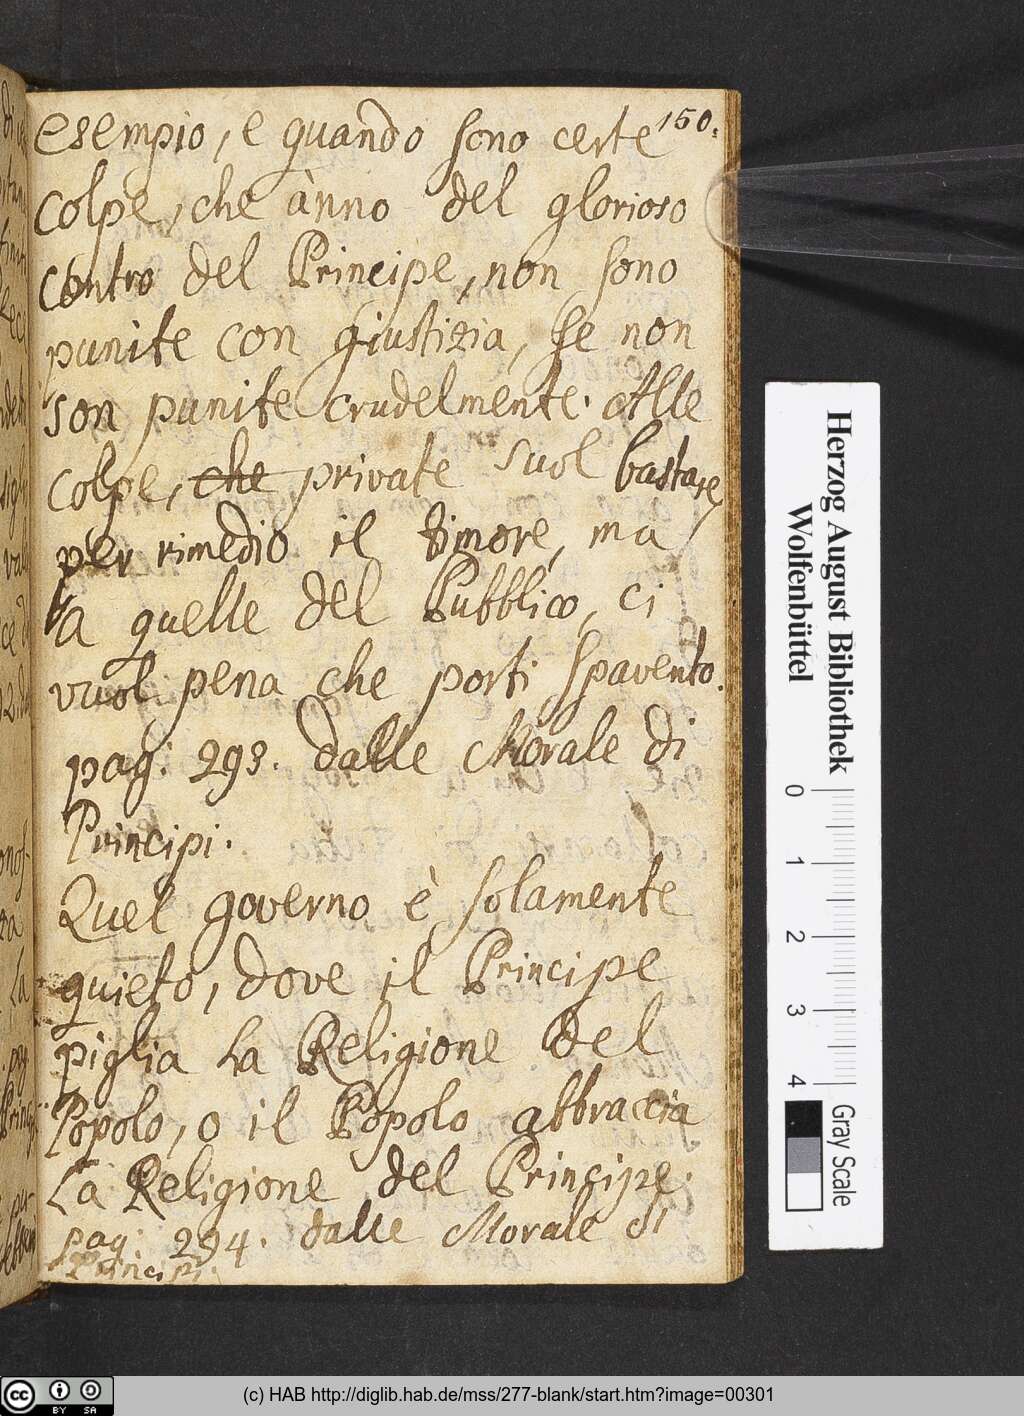 150.
esempio, e quando sono certe
colpe, che ànno del glorioso
contro del Principe, non sono
punite con giustizia, se non
son punite crudelmente. Alle
colpe, che private suol bastare
per rimedio il timore, ma
a quelle del Pubblico, ci
vuol pena che porti spavento.
pag: 293. dalle Morale di
Principi.
Quel governo è solamente
quieto, dove il Principe
piglia la Religione del
Popolo, o il Popolo abbraccia
la Religione del Principe.
pag: 294. dalle Morale di
Principi.
Herzog August Bibliothek
Wolfenbüttel
0 1 2 3 4
Gray Scale
(c) HAB http://diglib.hab.de/mss/277-blank/start.htm?image=00301
CC BY SA